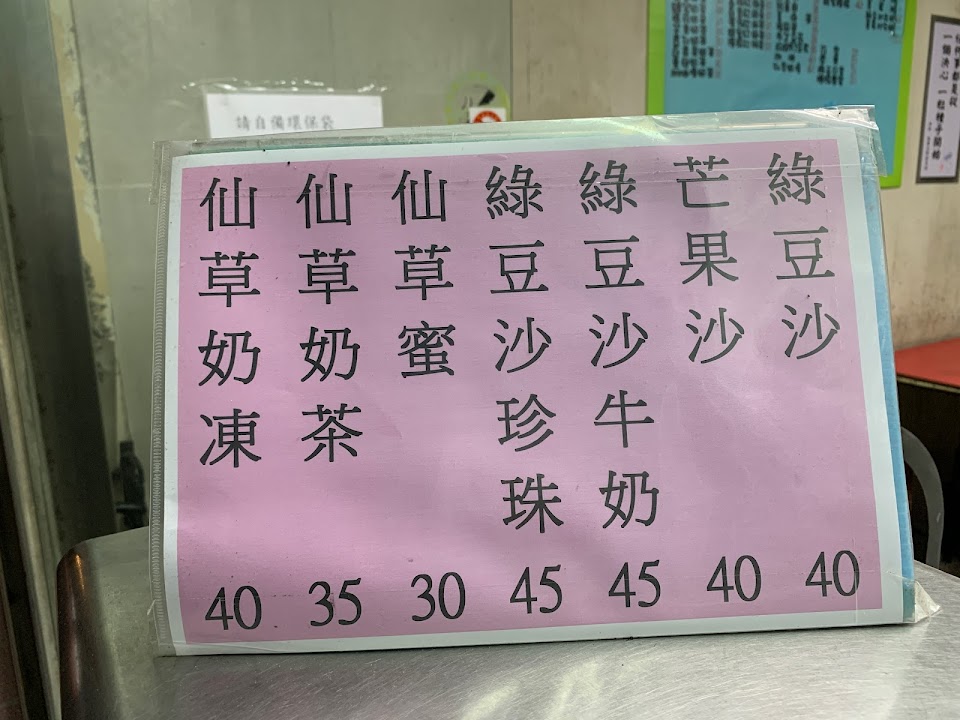 請自備環保袋
任何事都是從
一個決心 一粒種子開始
綠豆沙 40
芒果沙 40
綠豆沙牛奶 45
綠豆沙珍珠 45
仙草蜜 30
仙草奶茶 35
仙草奶凍 40